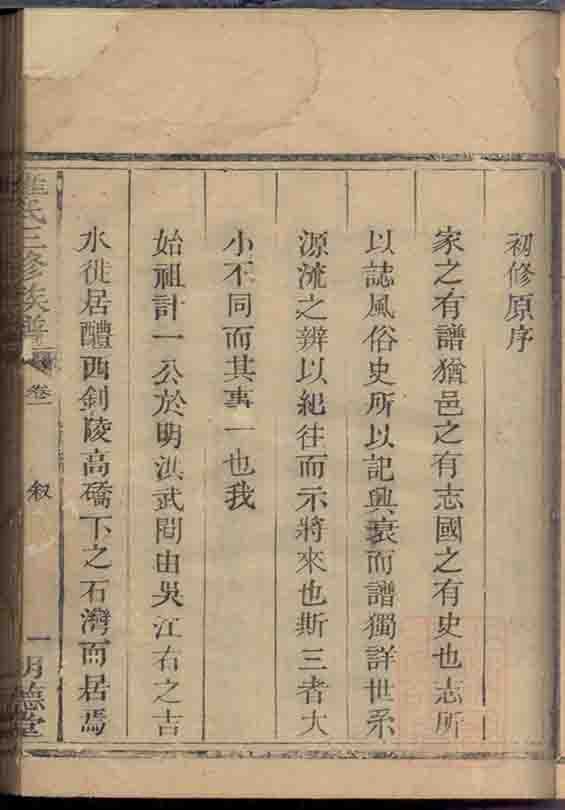 初修原序
家之有譜猶邑之有志國之有史也志所
以誌風俗史所以記興衰而譜獨詳世系
源流之辨以紀往而示將來也斯三者大
小不同而其事一也我
始祖計一公於明洪武間由吳江右之吉
水徙居醴西釗陵高礄下之石灣而居焉
氏三修族譜
卷一
叙
一
明德堂